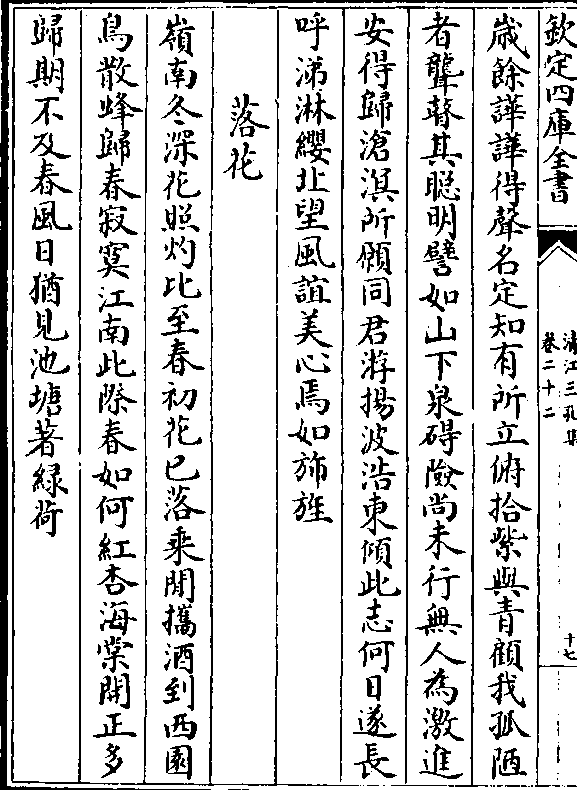 欽定四庫全書
清江三孔集
卷二十二
十七
歲餘譁譁得聲名定知有所立俯拾紫與青顧我孤陋
者聾瞽其聰明譬如山下泉碍險尚未行無人為激進
安得歸滄溟所願同君游揚波浩東傾此志何日遂長
呼涕淋纓北望風誼美心焉如斾旌
落花
嶺南冬深花照灼比至春初花已落乘閒攜酒到西園
鳥散蜂歸春寂寞江南此際春如何紅杏海棠開正多
歸期不及春風日猶見池塘著緑荷